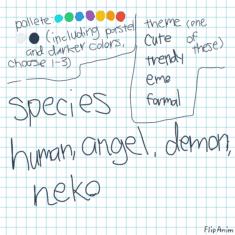 pallete
(including pastel
and darker colors,
choose 1-3)
theme (one
of
these)
cute
trendy
emo
formal
species
human, angel, demon,
neko
FlipAnim